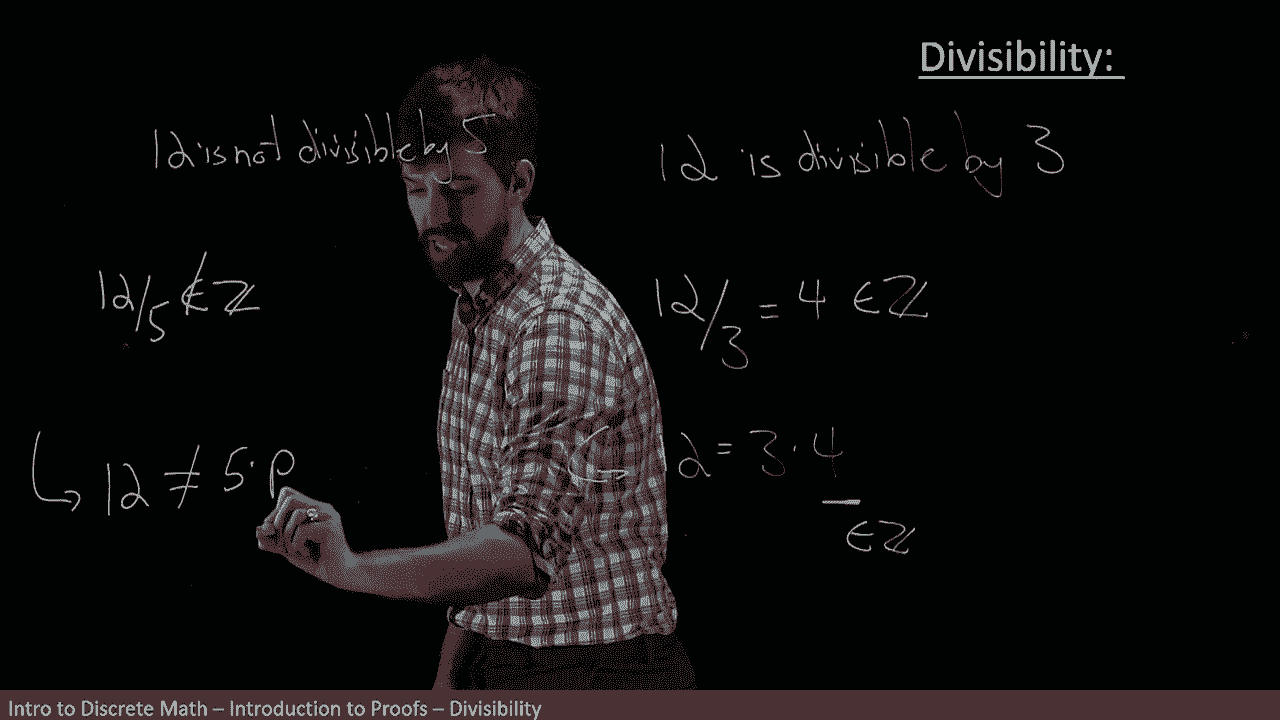 Divisibility:
12 is not divisible by 5
12 is divisible by 3
12/5 ∉ ℤ
12/3 = 4 ∈ ℤ
↳ 12 ≠ 5·p
↳ 12 = 3·4
∈ ℤ
Intro to Discrete Math – Introduction to Proofs – Divisibility